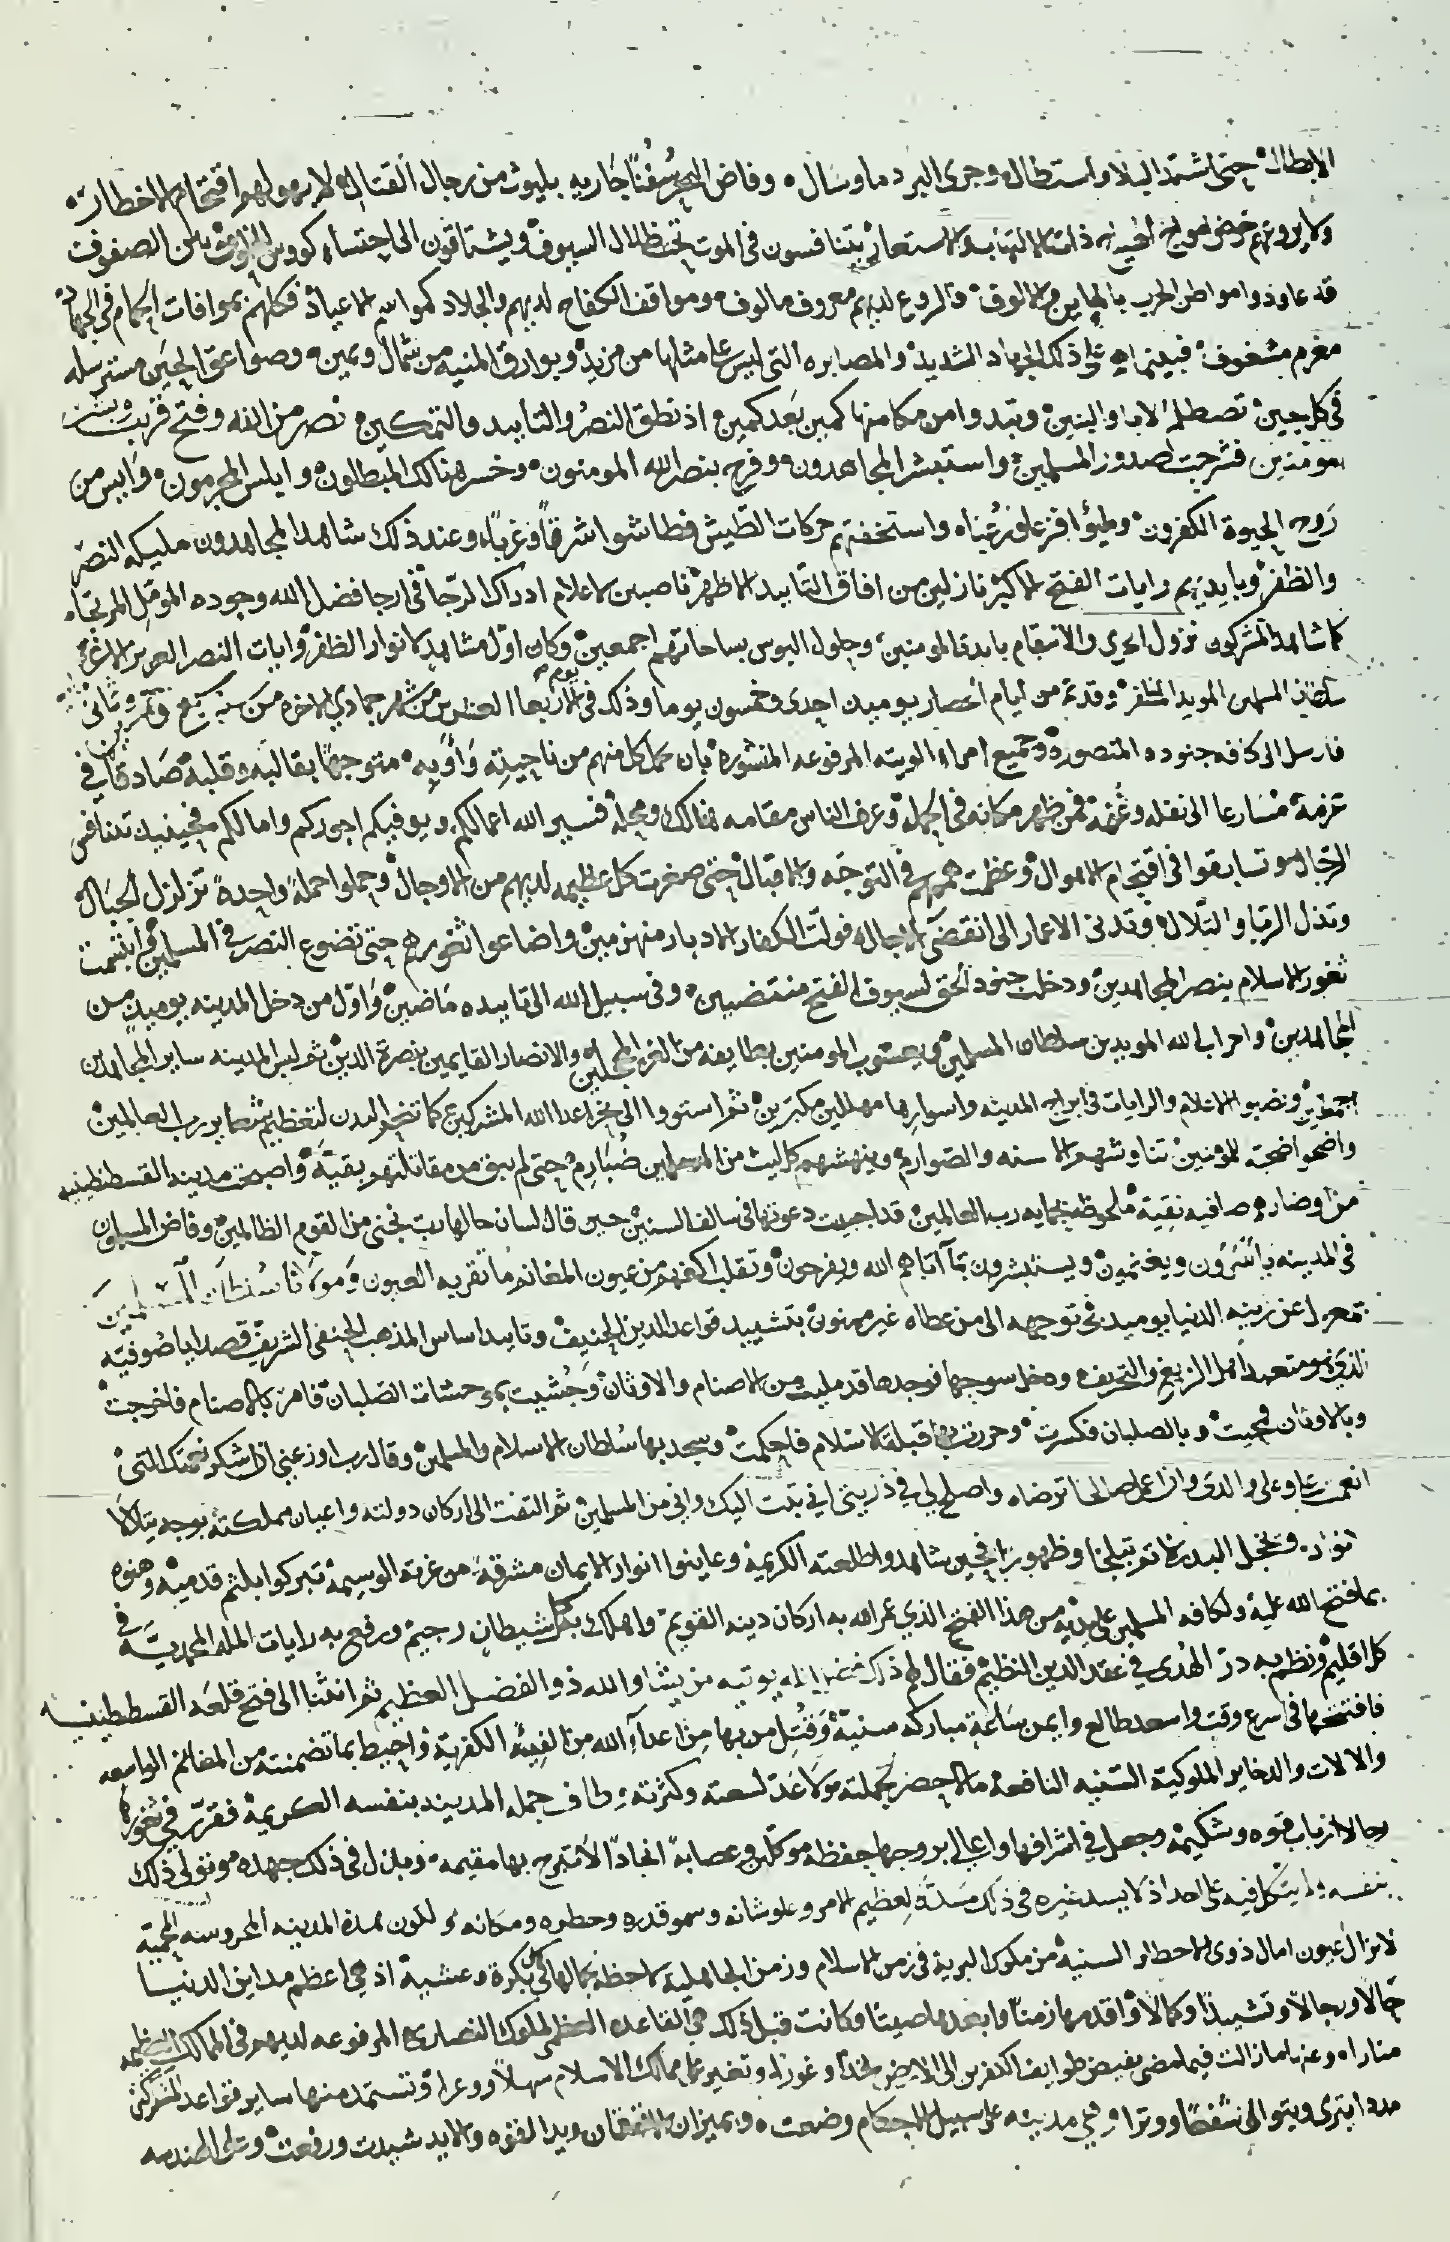 الابطال حتى اشتد البلا واستطال وجرى البر دما وسال وفاض البحر سفنا جاريه بليوث من رجال القتال لا يهولهم اقتحام الاخطار
ولا يروعهم خوض امواج ذات الالتهاب والاستعار يتنافسون فى الموت تحت ظلال السيوف ويشتاقون الى احتساء كووس بين الصفوف
قد عاودوا مواطن الحرب بالمايين والالوف فالروع لديهم معروف مالوف ومواقف الكفاح لديهم والجلاد كمواسم الاعياد فكلهم بموافات الحمام فى الجهاد
مغرم مشغوف فبينما هم على ذلك الجهاد الشديد والمصابره التى ليس على مثلها من مزيد وبوارق المنيه من شمال ويمين وصواعق الحين مسترسله
فى كل حين تصطلم الابا والبنين وتبدوا من مكامنها كمين بعد كمين اذ نطق النصر والتاييد والتمكين نصر من الله وفتح قريب وبشر
المومنين فشرحت صدور المسلمين واستبشر المجاهدون وفرح بنصر الله المومنون وخسر هنالك المبطلون وابلس المجرمون وايس من
روح الحيوة الكفرون وملئوا فزعا ورعبا واستخفتهم حركات الطيش فطاشوا شرقا وغربا وعند ذلك شاهد المجاهدون مليكه النصر
والظفر وبايديهم رايات الفتح الاكبر نازلين من افاق التاييد الاظهر ناصبين الاعلام ادراك الرجا فى ارجا فضل الله وجوده المومل المرتجاه
كما شاهد المشركون نزول الخزى والانتقام بايدى المومنين وحلول البوس بساحاتهم اجمعين وكان اول مشاهد لانوار الظفر وايات النصر العزيز الاغر
سلطان المسلمين المويد المظفر وقد تم من ايام الحصار يوميذ احدى وخمسون يوما وذلك فى يوم الاربعا العشرين من شهر جمادى الاخره من سنه سبع وخمسين وثمانى
فارسل الى كافه جنوده المنصوره وجميع امراء الويته المرفوعه المنشوره بان يحمل كل منهم من ناحيته واوبه متوجها بقالبه وقلبه صادقا فى
عزمه مسارعا الى نفله وغنمه فمن ظهر مكانه فى الحمله وعرف الناس مقامه هنالك ومحله فسيرى الله اعمالكم ويوفيكم اجوركم وامالكم فحينيذ تنافس
الرجال وتسابقوا فى اقتحام الاهوال وعظمت هممهم فى التوجه والاقبال حتى صغرت كل عظيمه لديهم من الاوجال وحملوا حملة واحدة تزلزل الجبال
وتذل الربا والتلال وتدنى الاعمار الى انقضى الاجال فولت الكفار الادبار منهزمين واضاعوا ثغورهم حتى تضوع النصر فى المسلمين وابتسمت
ثغور الاسلام بنصر المجاهدين ودخلت جنود الحق لسيوف الفتح منتضيين وفى سبيل الله الى تاييده ماضين واول من دخل المدينه يوميذ من
المجاهدين واحزاب الله المويدين سلطان المسلمين ويعسوب المومنين بطايفه من الغر المحجلين والانصار القايمين بنصرة الدين ثم لبس المدينه ساير المجاهدين
اجمعين ونصبوا الاعلام والرايات فى ابراج المدينه واسوارها مهللين مكبرين ثم استووا الى نحر اعدا الله المشركين كما تنحر البدن لتعظيم شعاير رب العالمين
واضحوا اضحية للمومنين تناوشهم الاسنه والصوارم وينهشهم كل ليث من المسلمين ضبارم حتى لم يبق من مقاتلتهم بقية واصبحت مدينة القسطنطينيه
من اوضاره صافيه نقية ملحوظة بحمايه رب العالمين قد اجيبت دعوتها فى سالف السنين حين قال لسان حالها رب نجنى من القوم الظالمين وفاض المسلمون
فى المدينه ياسرون ويغنمون ويستبشرون بما اتاهم الله ويفرحون وتقلب اكفهم من عيون المغانم ما تقر به العيون ومولانا سلطان المسلمين
بمعزل عن زينه الدنيا يوميذ فى توجهه الى من عطاه غير ممنون بتشييد قواعد الدين الحنيف وتاييد اساس المذهب الحنفى الشريف قصد ايا صوفيه
الذى هو متعبد اهل الزيغ والتحريف ودخل سوحها فوجدها قد مليت من الاصنام والاوثان وحشيت بموحشات الصلبان فامر بالاصنام فاخرجت
وبالاوثان فمحيت وبالصلبان فكسرت وحررت بها قبلة الاسلام فاحكمت وسجد بها سلطان الاسلام والمسلمين وقال رب اوزعنى ان اشكر نعمتك التى
انعمت على وعلى والدى وان اعمل صالحا ترضاه واصلح لى فى ذريتى انى تبت اليك وانى من المسلمين ثم التفت الى اركان دولته واعيان مملكته بوجه يتلالا
نوره ويخجل البدر اذا تم تبلجا وظهورا فحين شاهدوا طلعته الكريمه وعاينوا انوار الايمان مشرقة من غرته الوسيمه تبركوا بلثم قدميه وهنوه
بما فتح الله عليه ولكافه المسلمين على يديه من هذا الفتح الذي عمر الله به اركان دينه القويم واهلك به كل شيطان رجيم ورفع به رايات المله المحمدية فى
كل اقليم ونظم به در الهدى فى عقد الدين النظيم فقال لهم ذلك فضل الله يوتيه من يشا والله ذو الفضل العظيم ثم انثنا الى فتح قلعه القسطنطينيه
فافتتحها فى اسرع وقت واسعد طالع وايمن ساعة مباركه سنية وقتل من بها من اعداء الله من الفية الكفرية واحيط بما تضمنته من المغانم الواسعه
والالات والدخاير الملوكية السنيه النافعة ما لا حصر لجملته ولا عد لسعته وكثرته وطاف جمله المدينه بنفسه الكريمة فقرر فى ثغورها
رجالا ارباب قوه وشكيمة وجعل فى اشرافها واعالى بروجها حفظه موكلين وعصابة انجادا لا تبرح بها مقيمه وبذل فى ذلك جهده وتولى ذلك
بنفسه ولم يتكل فيه على احد اذ لا يسد غيره فى ذلك مسده لعظيم الامر وعلو شانه وسمو قدره وخطره ومكانه ولكون هذه المدينه المحروسه المحمية
لا تزال عيون امال ذوى الاخطار السنيه من ملوك البرية فى زمن الاسلام وزمن الجاهلية لاحظه بجمالها كل بكرة وعشية اذ هى اعظم مداين الدنيا
حالا ورجالا وتشييدا وكمالا واقدمها زمنا وابعدها صيتا وكانت قبل ذلك هى القاعده العظمى لملوك النصارى المرفوعه لديهم فى الممالك العظيمه
مناراه وعزها ما زالت فيما مضى يفيض طوايف الكفر من الى الارض نجدا وغورا وتغير على ممالك الاسلام سهلا ووعرا وتستمد منها ساير قواعد الشرك
مددا يترى ويتوالى شفعا ووترا وهى مدينه على سبيل الاحكام وضعت وبميزان الاتقان ويد القوه والايد شيدت ورفعت وعلى الهندسه